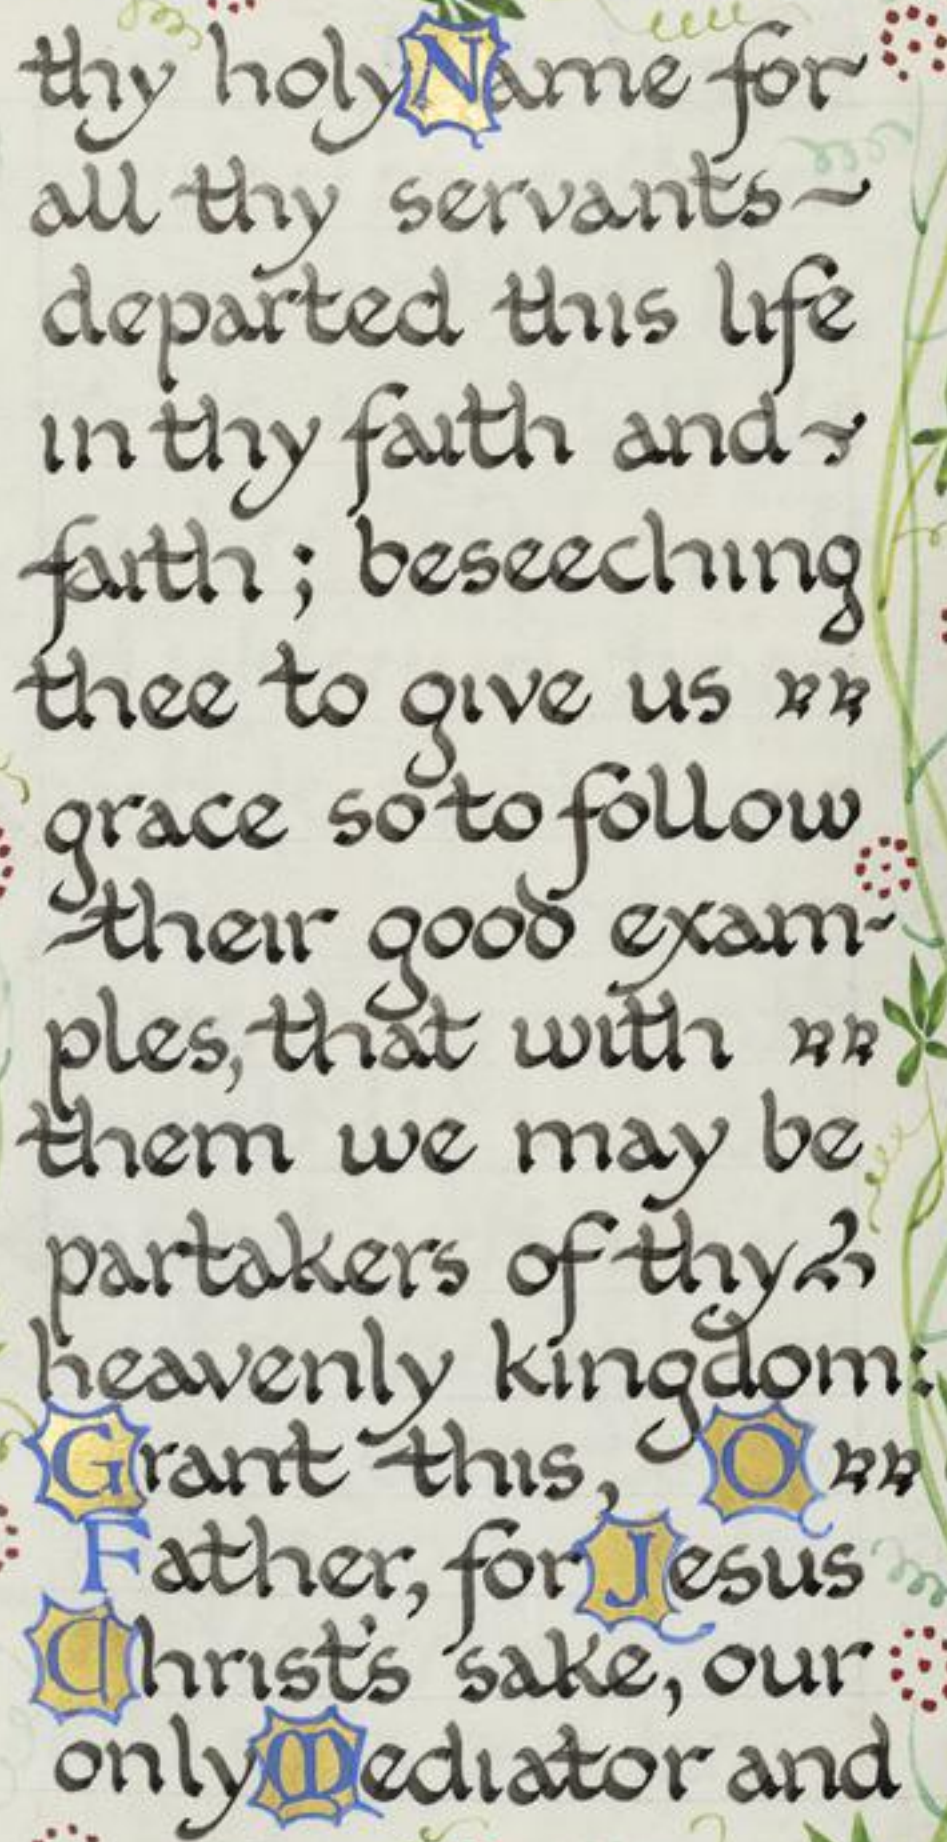 thy holy Name for
all thy servants ~
departed this life
in thy faith and ~
faith ; beseeching
thee to give us
grace so to follow
their good exam-
ples, that with
them we may be
partakers of thy
heavenly kingdom:
Grant this, O
Father, for Jesus
Christ's sake, our
only Mediator and